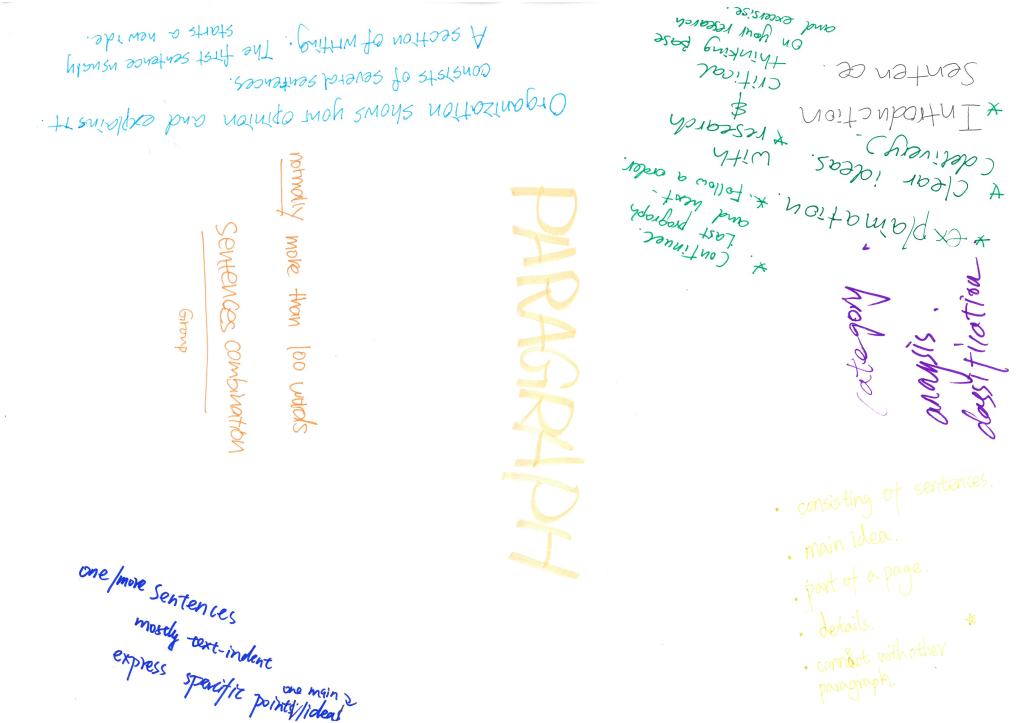 PARAGRAPH
Organization shows your opinion and explains it.
consists of several sentences.
A section of writing. The first sentence usually
starts a new ide.
* explaination.
* Clear ideas.
(delivery)
* Introduction
Sentence.
* Continuel.
Last pragraph
and next-
*. Follow a order.
with
* research
&
critical
thinking base
on your research
and excersise.
normally more than 100 words
Sentences combination
Group
category
analysis.
classification
• consisting of sentences.
• main idea.
• part of a page.
• details.
• connect with other
paragraph.
one/more sentences
mostly text-indent
express specific points/ideas
one main